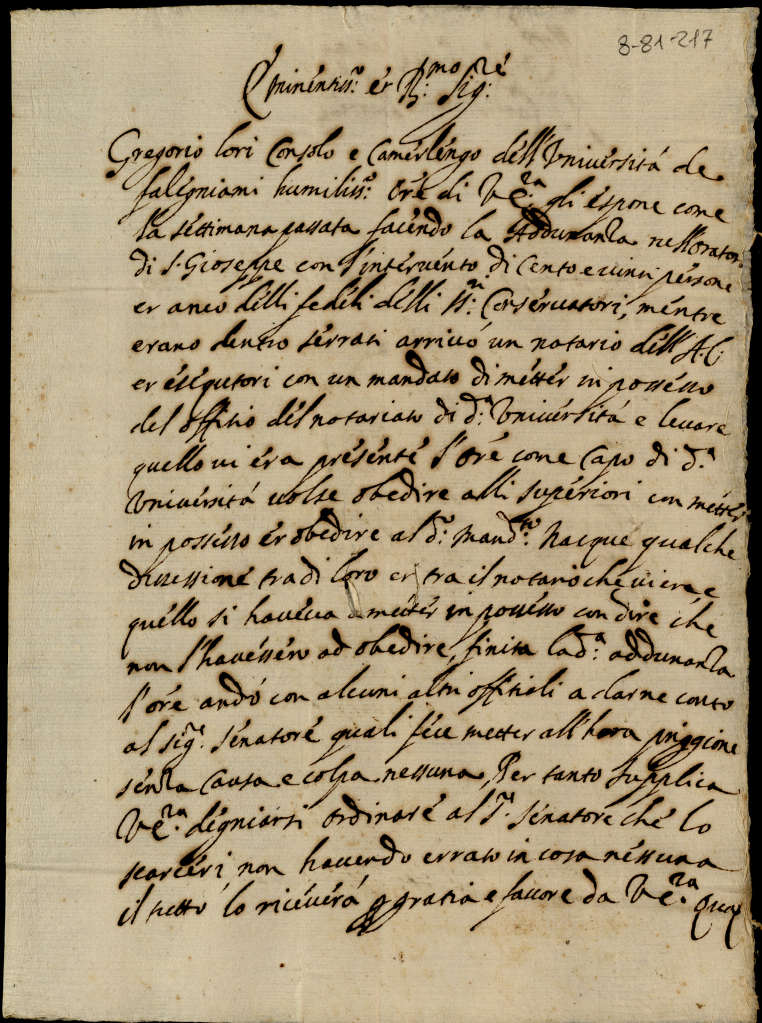 8-81-217
Eminentiss.o et R.mo Sig.re
Gregorio lori Consolo e Camerlengo dell'Università de
falegniami humiliss.o Ore di V.E.za gli espone come
la settimana passata facendo la Addunanza nell'Orator.o
di S. Gioseppe con l'intervento di Cento e vinti persone
et anco delli fedeli delli SS.ri Conservatori, mentre
erano dentro serrati arrivò un notario dell'A.C.
et essequtori con un mandato di metter in possesso
del offitio del notariato di d.a Università e levare
quello vi era presente l'Ore come Capo di d.a
Università volse obedire alli superiori con metter
in possesso et obedire al d.o Mand.to Nacque qualche
dissessione tra di loro et tra il notario che vi era e
quello si haveva a metter in possesso con dire che
non l'havessero ad obedire, finita la d.a addunanza
l'ore andò con alcuni altri offitiali a darne conto
al Sig.r Senatore quali fece metter all'hora priggione
senza Causa e colpa nessuna, Per tanto supplica
V.E.za degniarsi ordinare al S.r Senatore che lo
scarceri non havendo errato in cosa nessuna
il tutto lo riceverà p gratia e favore da V.E.za Qua